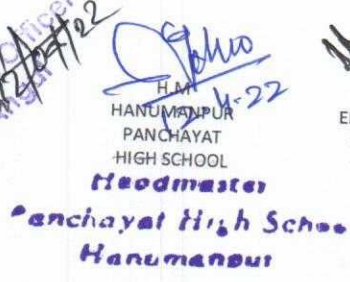 Officer
12/04/22
H.M
12-4-22
HANUMANPUR
PANCHAYAT
HIGH SCHOOL
Headmaster
Panchayat High Schoo
Hanumanpur